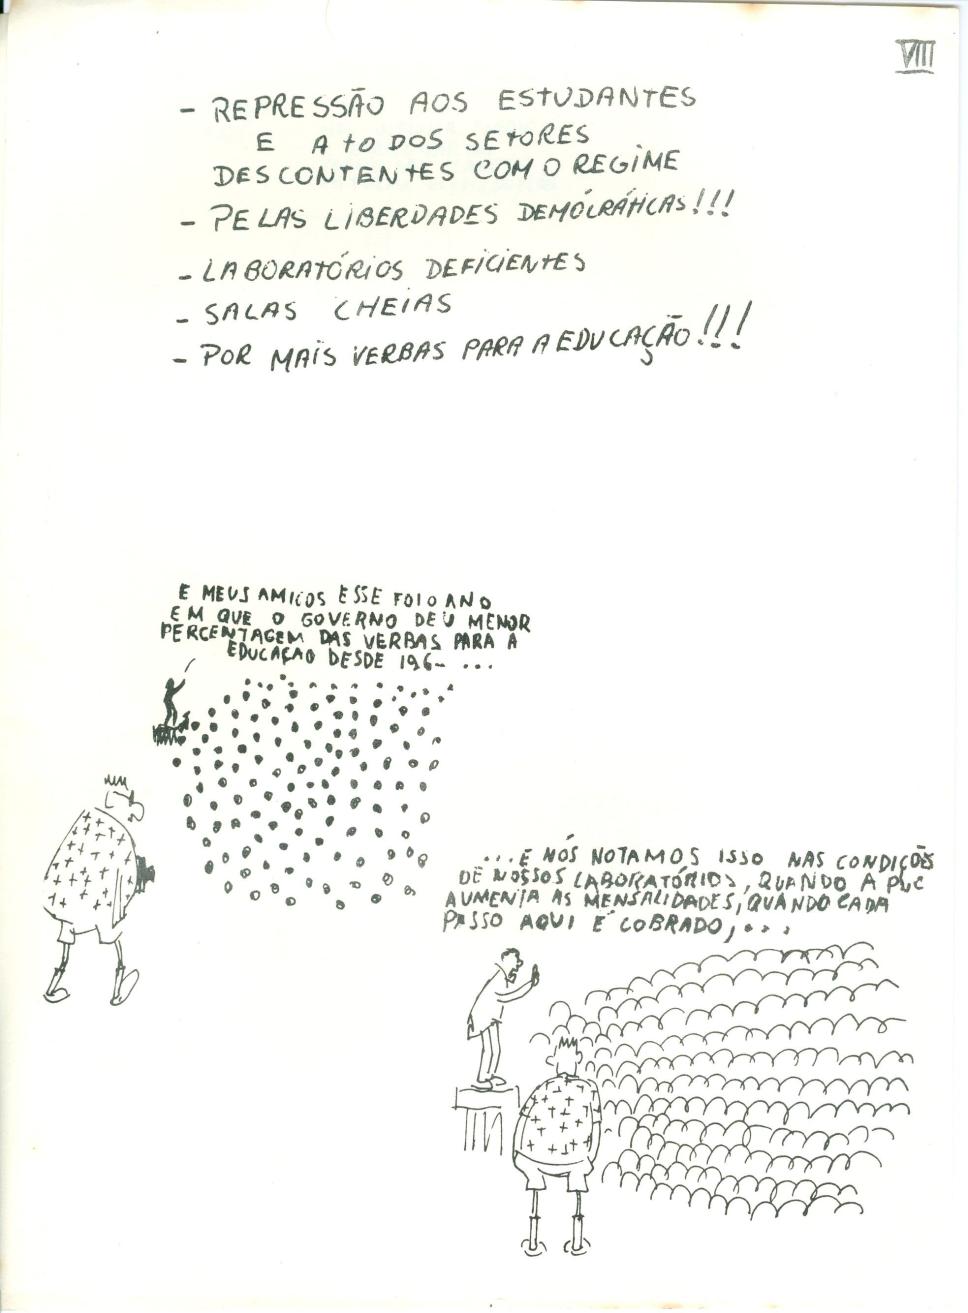 VIII
- REPRESSÃO AOS ESTUDANTES
E A TODOS SETORES
DESCONTENTES COM O REGIME
- PELAS LIBERDADES DEMÓCRÁTICAS!!!
- LABORATÓRIOS DEFICIENTES
- SALAS CHEIAS
- POR MAIS VERBAS PARA A EDUCAÇÃO!!!
E MEUS AMIGOS ESSE FOI O ANO
EM QUE O GOVERNO DEU MENOR
PERCENTAGEM DAS VERBAS PARA A
EDUCAÇAO DESDE 196- ...
...E NÓS NOTAMOS ISSO NAS CONDIÇÕES
DE NOSSOS LABORATÓRIOS, QUANDO A PUC
AUMENTA AS MENSALIDADES, QUANDO CADA
PASSO AQUI É COBRADO, ...